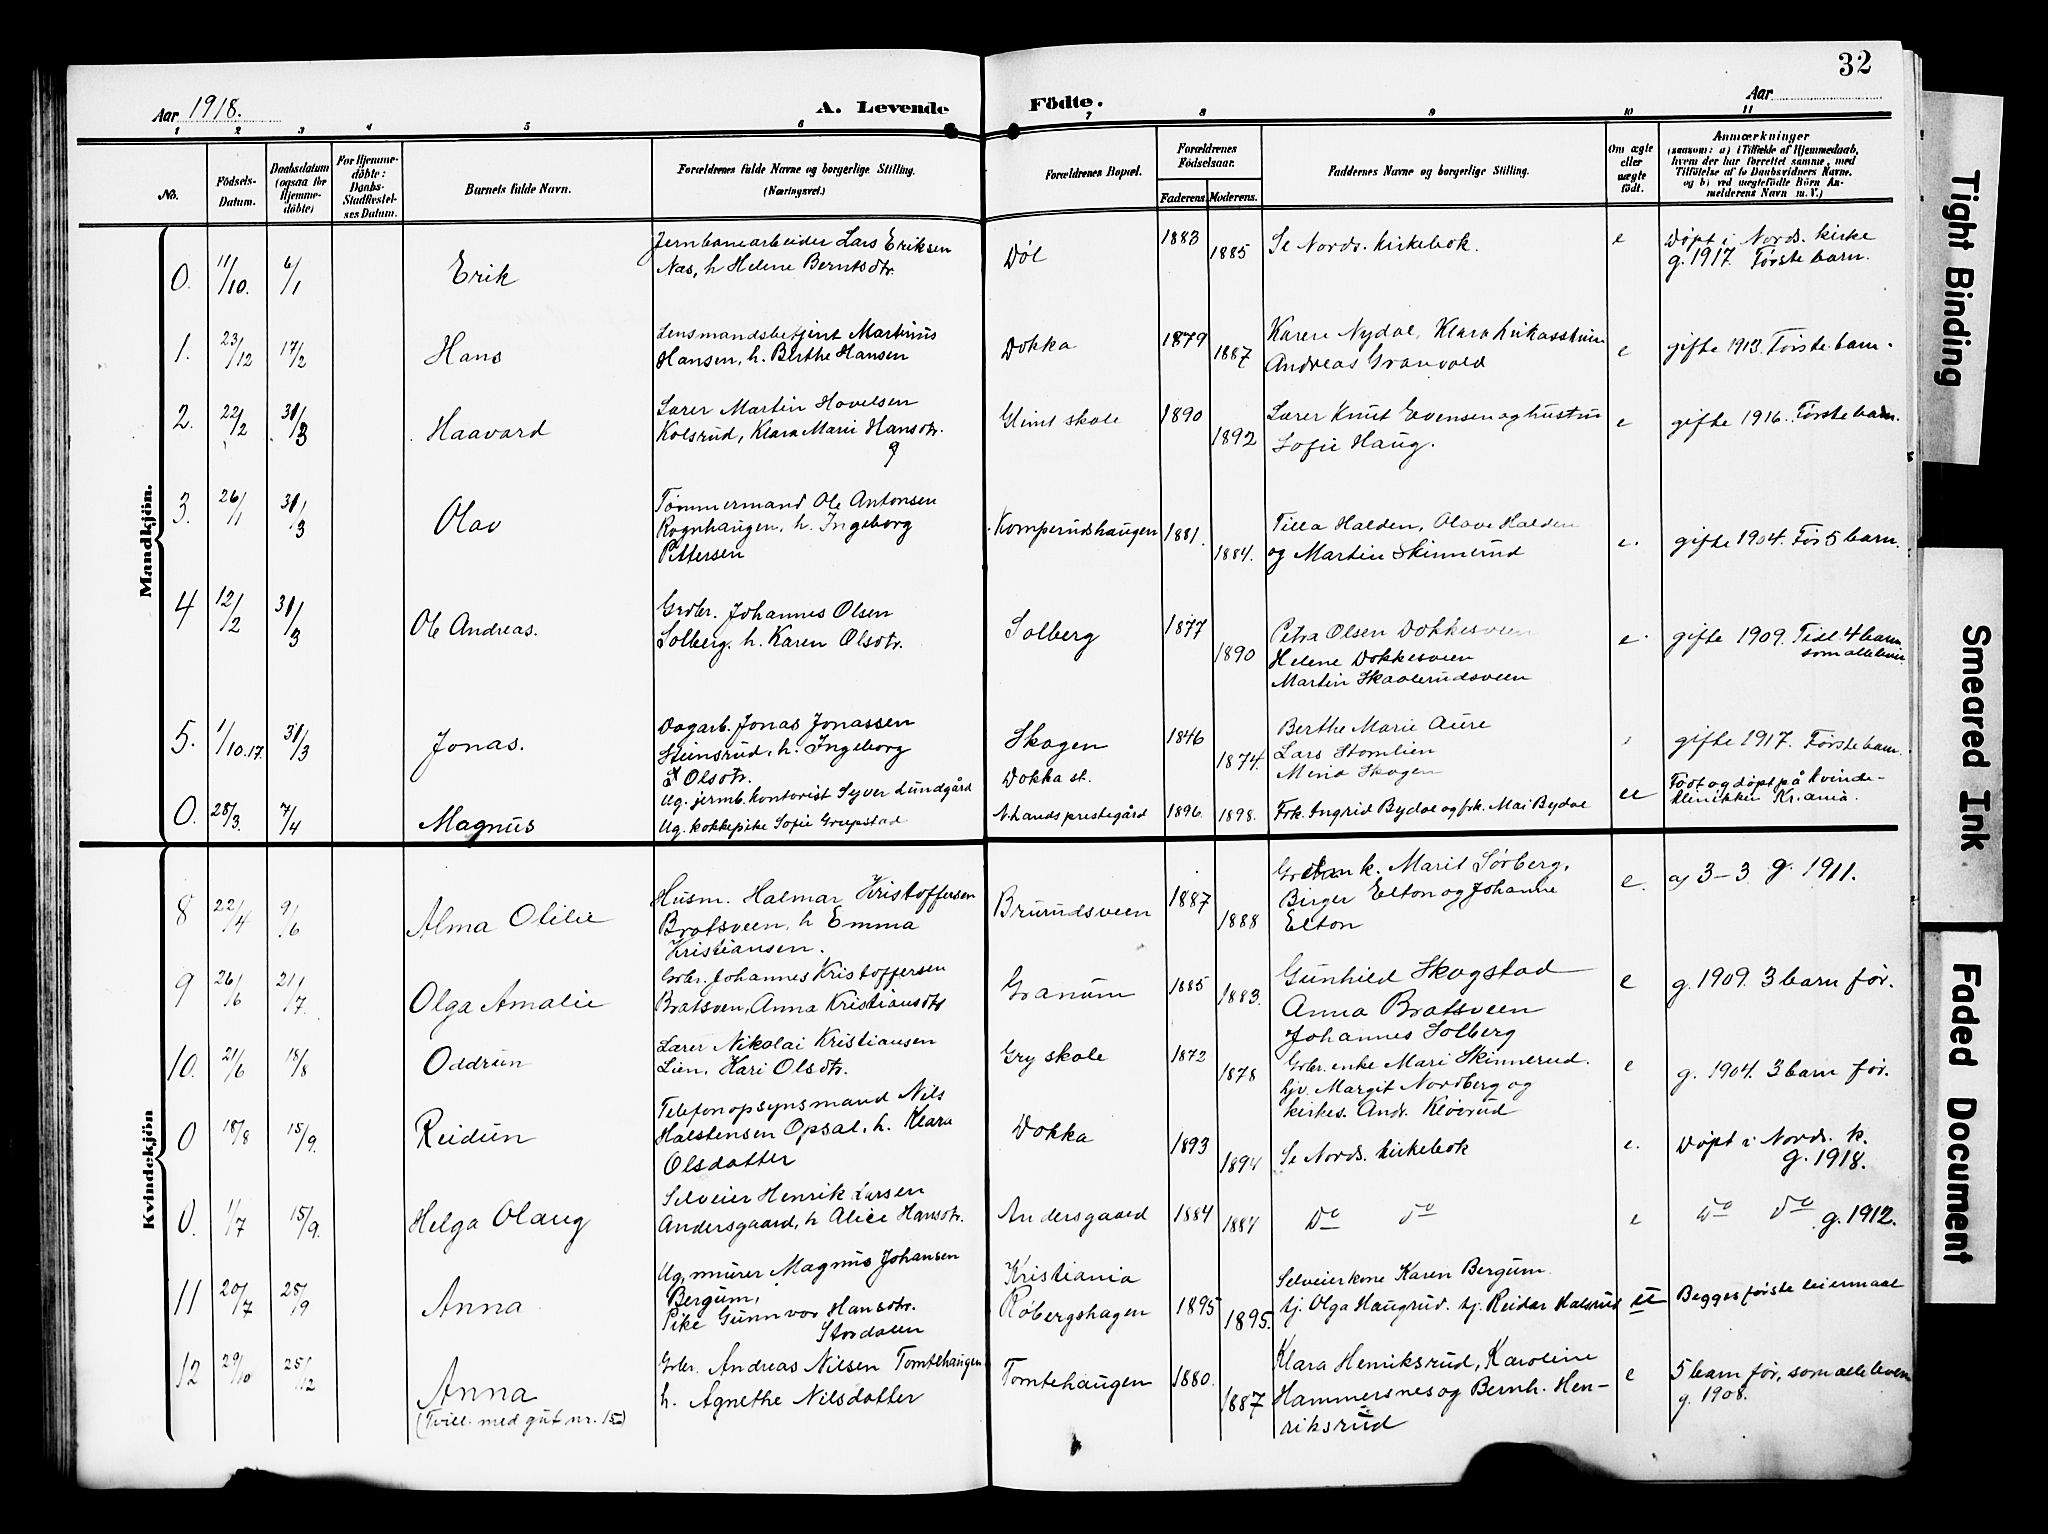 32
Aar 1918.
A. Levende Födte.
Aar
1 2 3 4 5 6 7 8 9 10 11
No.
Födsels-Datum.
Daabsdatum (ogsaa for Hjemme-döbte)
For Hjemme-döbte: Daabs-Stadfæstel-ses Datum.
Barnets fulde Navn.
Forældrenes fulde Navne og borgerlige Stilling.
(Næringsvei.)
Forældrenes Bopæl.
Forældrenes Födselsaar.
Faderens Moderens.
Faddernes Navne og borgerlige Stilling.
Om ægte eller uægte födt.
Anmærkninger
(saasom: a) i Tilfælde af Hjemmedaab, hvem der har forrettet samme, med Tilföielse af to Daabsvidners Navne, og b) ved uægtefödte Börn An-melderens Navn m. V.)
Mandkjön.
0. 11/10. 6/1 Erik
Jernbanearbeider Lars Eriksen
Næs, h Helene Berntsdtr.
Døl 1883 1885 Se Nords. kirkebok. e
Døpt i Nords. kirke
g. 1917. Første barn.
1. 23/12 17/2 Hans
Lensmandsbetjent Martinius
Hansen, h. Berthe Hansen
Dokka 1879 1887
Karen Nydal, Klara
Andreas Granvold
e gifte 1913. Første barn.
2. 22/2 31/3 Haavard
Lærer Martin Hovelsen
Kolsrud, Klara Marie Hansdtr.
Glimt skole 1890 1892
Lærer Knut Evensen og hustru
Sofie Haug.
e gifte 1916. Første barn.
3. 26/1 31/3 Olav
Tømmermand Ole Antonsen
Rognhaugen, h. Ingeborg
Pettersen
Komperudshaugen 1881. 1884.
Tilla Halden, Olave Halden
og Martin Skinnerud
e. gifte 1904. Før 5 barn.
4 12/2 31/3 Ole Andreas.
Grdbr. Johannes Olsen
Solberg, h. Karen Olsdtr.
Solberg 1877 1890
Petra Olsen Dokkesveen
Helene Dokkesveen
Martin Skaalerudsveen
e. gifte 1909. Tidl 4 barn
som alle lever
5. 1/10.17. 31/3 Jonas.
Dagarb. Jonas Jonassen
Steinsrud, h. Ingeborg
Olsdtr.
Skogen 1846 1874.
Berthe Marie Aure
Lars Stomlien
Mina Skogen
gifte 1917. Første barn.
0. 28/3. 7/4 Magnus
Ug. jernb. kontorist Syver Lundgård
Ug. kokkepike Sofie Grepstad
Dokka st.
N. Lands prestegård 1896. 1898.
Frk. Ingrid Bydal og frk. Mai Bydal
ue
Født og døpt på kvinde-
klinikken Kr.ania.
Kvindekjön
8 22/4 9/6 Alma Otilie
Husm. Halmar Kristoffersen
Bratsveen, h Emma
Kristiansen.
Brurudsveen 1887 1888
k. Marit Sørberg,
Birger Elton og Johanne
Elton
e. 3-3 g. 1911.
9 26/6 21/7. Olga Amalie
Grbr. Johannes Kristoffersen
Bratsven, Anna Kristiansdtr
Granum 1885 1883.
Gunhild Skogstad
Anna Bratsveen
Johannes Solberg
e g. 1909. 3 barn før.
10. 21/6 18/8 Oddrun
Lærer Nikolai Kristiansen
Lien, Kari Olsdtr.
Gry skole 1872 1878
Grbr. enke Mari Skinnerud.
Margit Nordberg og
kirkes. Andr. Kløvrud
e g. 1904. 3 barn før.
0 18/8 15/9. Reidun
Telefonopsynsmand Nils
Halstensen Opsal, h. Klara
Olsdatter
Dokka 1893 1894
Se Nords. kirkebok
e. Døpt i Nords. k.
g. 1918.
0. 1/7 15/9. Helga Olaug
Selveier Henrik Larsen
Andersgaard, h Alice Hansdtr.
Andersgaard 1884 1884
Do do
e Do do g. 1912.
11 20/7 25/9 Anna
Ug. murer Magnus Johansen
Bergum,
Pike Gunnvor Hansdtr.
Stordalen
Kristiania
Røbergshagen 1895 1895.
Selveierkone Karen Bergum.
tj. Olga Haugrud. tj. Reidar Halsrud
ue Begges første leiermaal
12 29/10 25/12 Anna
(Tvill. med gut nr. 15)
Grbr. Andreas Nilsen Tomtehaugen
h. Agnethe Nilsdatter
Tomtehaugen 1880. 1887
Klara Henriksrud, Karoline
Hammersnes og Bernh. Hen-
riksrud
e 5 barn før, som alle lever
g. 1908.
Tight Binding
Smeared Ink
Faded Document